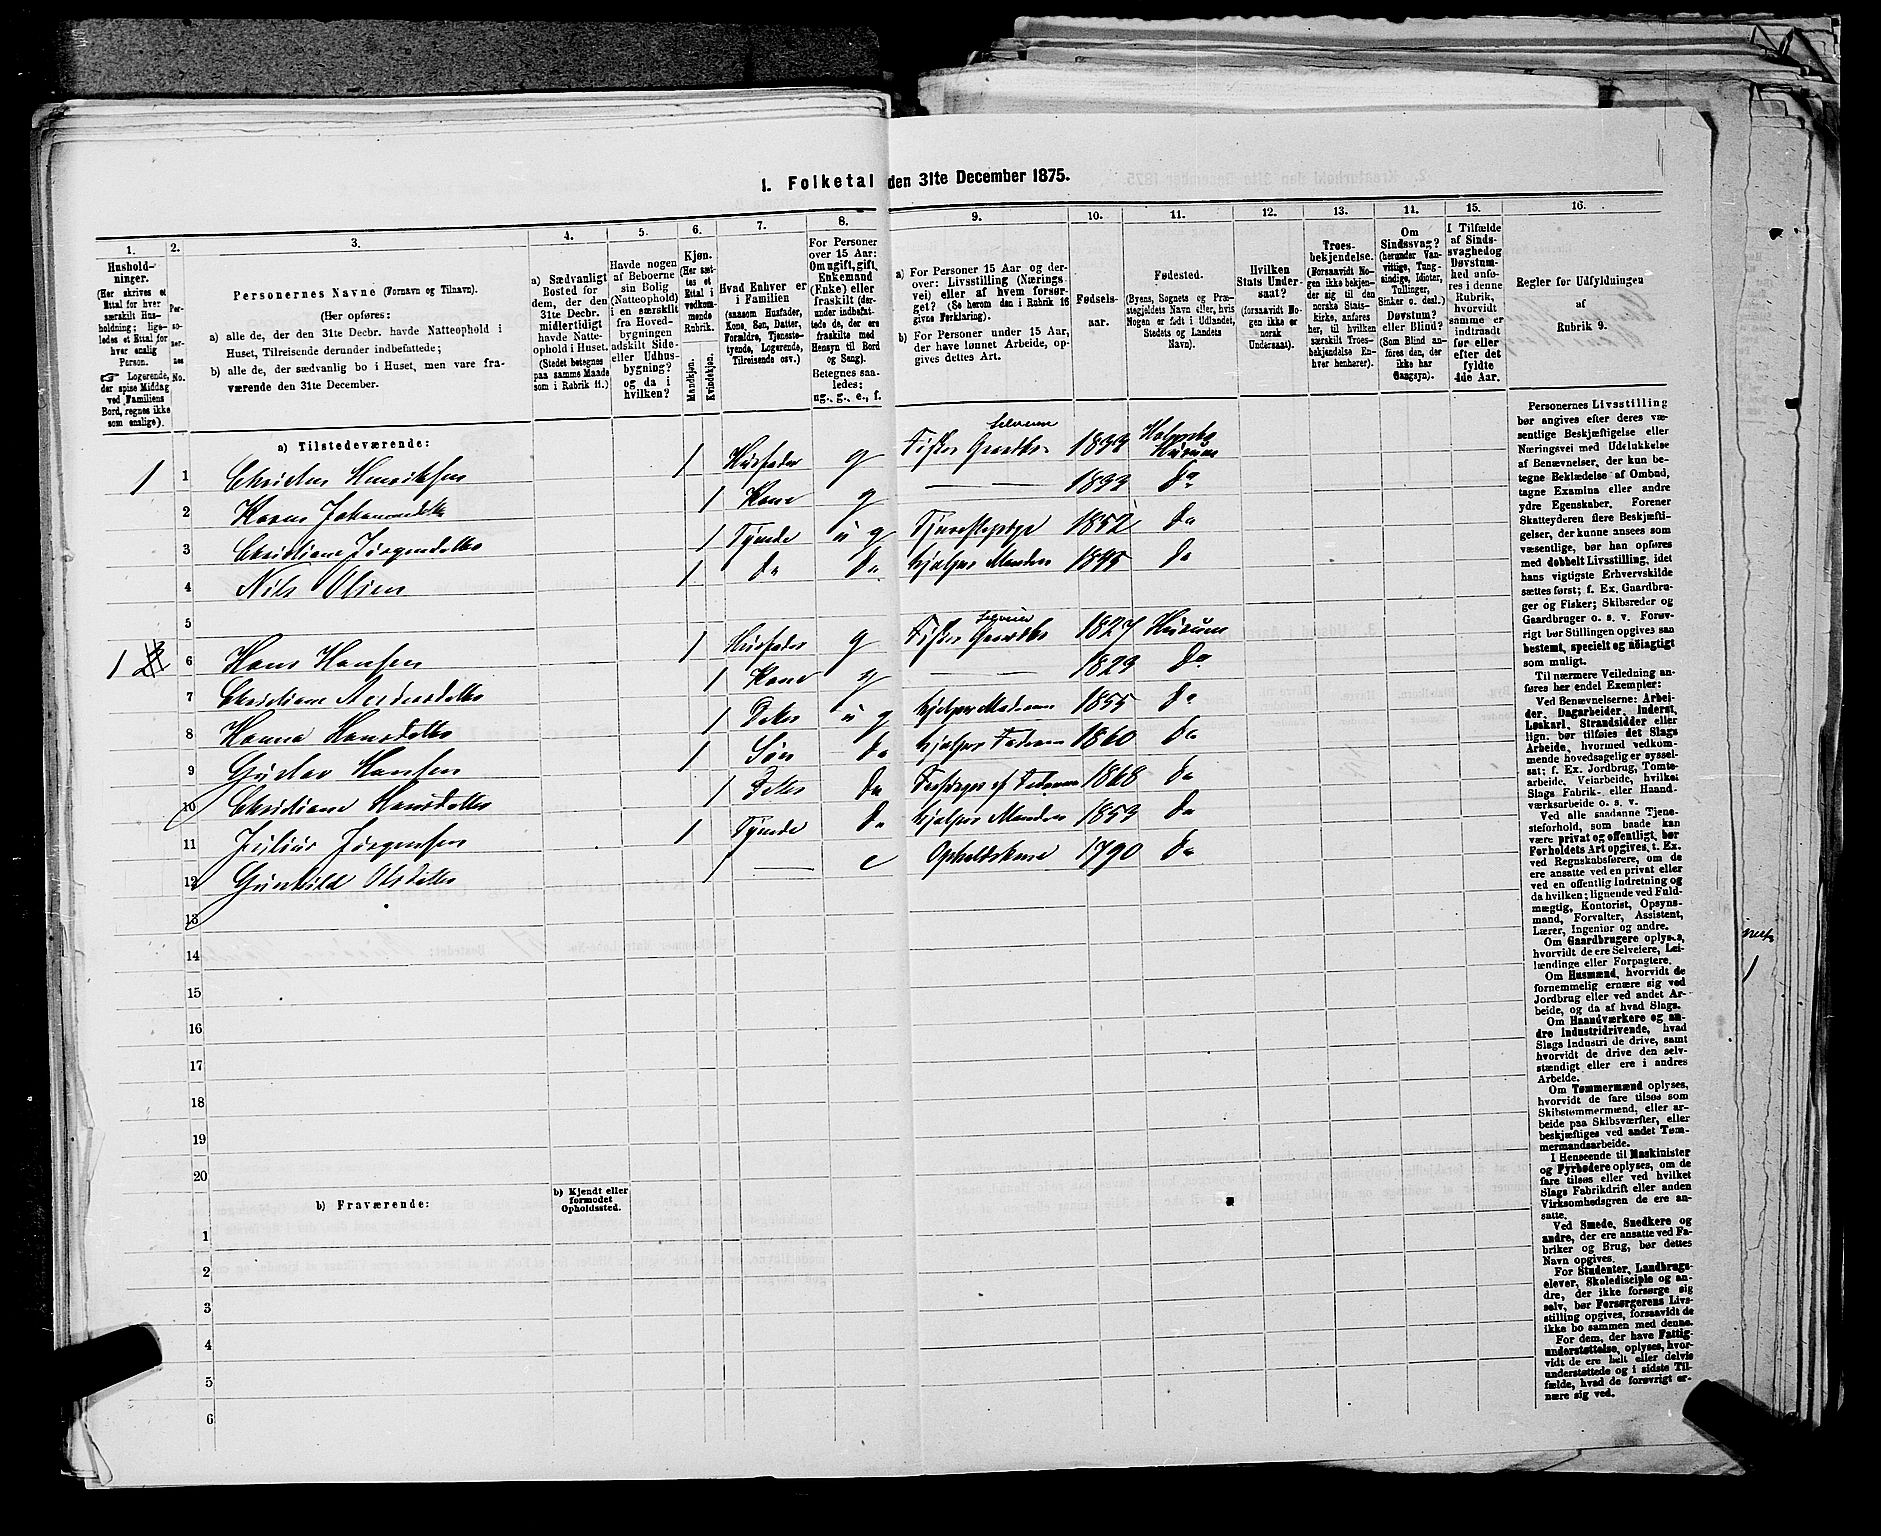 1. Folketal den 31te December 1875.
1. 2. 3. 4. 5. 6. 7. 8. 9. 10. 11. 12. 13. 14. 15. 16.
Hushold-
ninger.
(Her skrives et
Ettal for hver
særskilt Hus-
holdning; lige-
ledes et Ettal for
hver enslig
Person.
☞ Logerende,
der spise Middag
ved Familiens
Bord, regnes ikke
som enslige).
Per-
so-
ner-
nes
No.
Personernes Navne (Fornavn og Tilnavn).
(Her opføres:
a) alle de, der den 31te Decbr. havde Natteophold i
Huset, Tilreisende derunder indbefattede;
b) alle de, der sædvanlig bo i Huset, men vare fra-
værende den 31te December.
a) Sædvanligt
Bosted for
dem, der den
31te Decbr.
midlertidigt
havde Natte-
ophold i Huset.
(Stedet betegnes
paa samme Maade
som i Rubrik 11.)
Havde nogen
af Beboerne
sin Bolig
(Natteophold)
i en særskilt
fra Hoved-
bygningen
adskilt Side-
eller Udhus-
bygning?
og da i
hvilken?
Kjøn.
(Her sæt-
tes et
Ettal i
vedkom-
mende
Rubrik.
Mandkjøn.
Kvindekjøn.
Hvad Enhver er
i Familien
(saasom Husfader,
Kone, Søn, Datter,
Forældre, Tjeneste-
tyende, Logerende,
Tilreisende osv.)
For Personer
over 15 Aar:
Om ugift, gift,
Enkemand
(Enke) eller
fraskilt (der-
under indbefat-
tede de, der ere
fraskilte med
Hensyn til Bord
og Seng).
Betegnes saa-
ledes:
ug., g., e., f.
a) For Personer 15 Aar og der-
over: Livsstilling (Nærings-
vei) eller af hvem forsør-
get? (Se herom den i Rubrik 16
givne Forklaring).
b) For Personer under 15 Aar,
der have lønnet Arbeide, op-
gives dettes Art.
Fødsels-
aar.
Fødested.
(Byens, Sognets og Præ-
stegjeldets Navn eller, hvis
Nogen er født i Udlandet,
Stedets og Landets
Navn).
Hvilken
Stats Under-
saat?
(forsaavidt No-
gen ikke er
norsk
Undersaat).
Troes-
bekjendelse.
(Forsaavidt No-
gen ikke bekjen-
der sig til den
norske Stats-
kirke, anføres
her, til hvilken
særskilt Troes-
bekjendelse En-
hver henhører).
Om
Sindssvag?
(herunder Van-
vittige, Tung-
sindige, Idioter,
Tullinger,
Sinker o. desl.)
Døvstum?
eller Blind?
(Som Blind an-
føres den, der
ikke har
Gangsyn).
I Tilfælde
af Sinds-
svaghed og
Døvstum-
hed anfø-
res i denne
Rubrik,
hvorvidt
samme er
indtraadt
før eller
efter det
fyldte
4de Aar.
Regler for Udfyldningen
af
Rubrik 9.
a) Tilstedeværende:
1 1 Christen Henriksen 1 Husfader g Fisker Gaardbr. Selveier 1833 Hurum
2 Karen Johannesdtr 1 Kone g — 1833 do
3 Christiane Jørgensdatter 1 Tyende ug Tjenestepige 1852 do
4 Nils Olsen 1 do do hjælper Manden 1845 do
5
1 6 Hans Hansen 1 Husfader g Fisker Gaardbr Selveier 1827 Hurum
7 Christiane Andersdatter 1 Kone g — 1823 do
8 Hanna Hansdatter 1 Datter ug hjelper Moderen 1855 do
9 Gustav Hansen 1 Søn do hjælper Faderen 1860 do
10 Christiane Hansdatter 1 Datter do Forsørges af Faderen 1868 do
11 Julius Jørgensen 1 Tyende do hjelper Manden 1853 do
12 Gunhild Olsdatter 1 — e Opholdskone 1790 do
13
14
15
16
17
18
19
20
b) Fraværende:
b) Kjendt eller
formodet
Opholdssted.
1
2
3
4
5
6
Personernes Livsstilling
bør angives efter deres væ-
sentlige Beskjæftigelse eller
Næringsvei med Udelukkelse
af Benævnelser, der kun be-
tegne Beklædelse af Ombud,
tagne Examina eller andre
ydre Egenskaber. Forener
Skatteyderen flere Beskjæfti-
gelser, der kunne ansees som
væsentlige, bør han opføres
med dobbelt Livsstilling, idet
hans vigtigste Erhvervskilde
sættes først; f. Ex. Gaardbru-
ger og Fisker; Skibsreder og
Gaardbruger o. s. v. Forøv-
rigt bør Stillingen opgives saa
bestemt, specielt og nøiagtigt
som muligt.
Til nærmere Veiledning an-
føres her endel Exempler:
Ved Benævnelserne: Arbei-
der, Dagarbeider, Inderst,
Løskarl, Strandsidder eller
lign. bør tilføies det Slags
Arbeide, hvormed vedkom-
mende hovedsagelig er syssel-
sat; f. Ex. Jordbrug, Tomte-
arbeide, Veiarbeide, hvilket
Slags Fabrik- eller Haand-
værksarbeide o. s. v.
Ved alle saadanne Tjene-
steforhold, som baade kan
være privat og offentligt, bør
Forholdets Art opgives, t. Ex.
ved Regnskabsførere, om de
ere ansatte ved en privat eller
ved en offentlig Indretning og
da hvilken; lignende ved Fuld-
mægtig, Kontorist, Opsyns-
mand, Forvalter, Assistent,
Lærer, Ingeniør og andre.
Om Gaardbrugere oplyses,
hvorvidt de ere Selveiere, Lei-
lændinge eller Forpagtere.
Om Husmænd, hvorvidt de
fornemmelig ernære sig ved
Jordbrug eller ved andet Ar-
beide, og da af hvad Slags.
Om Haandværkere og an-
dre Industridrivende, hvad
Slags Industri de drive, samt
hvorvidt de drive den selv-
stændigt eller ere i andres
Arbeide.
Om Tømmermænd oplyses,
hvorvidt de fare tilsøs som
Skibstømmermænd, eller ar-
beide paa Skibsværfter, eller
beskjæftiges ved andet Tøm-
mermandsarbeide.
I Henseende til Maskinister
og Fyrbødere oplyses, om de
fare tilsøs eller ved hvilket
Slags Fabrikdrift eller anden
Virksomhedsgren de ere an-
satte.
Ved Smede, Snedkere og
andre, der ere ansatte ved Fa-
briker og Brug, bør dettes
Navn opgives.
For Studenter, Landbrugs-
elever, Skoledisciple og an-
dre, der ikke forsørge sig
selv, bør Forsørgerens Livs-
stilling opgives, forsaavidt de
ikke bo sammen med denne.
For dem, der have Fattig-
understøttelse, oplyses, hvor-
vidt de ere helt eller delvis
understøttede og i sidste Til-
fælde, hvad de forøvrigt er-
nære sig ved.